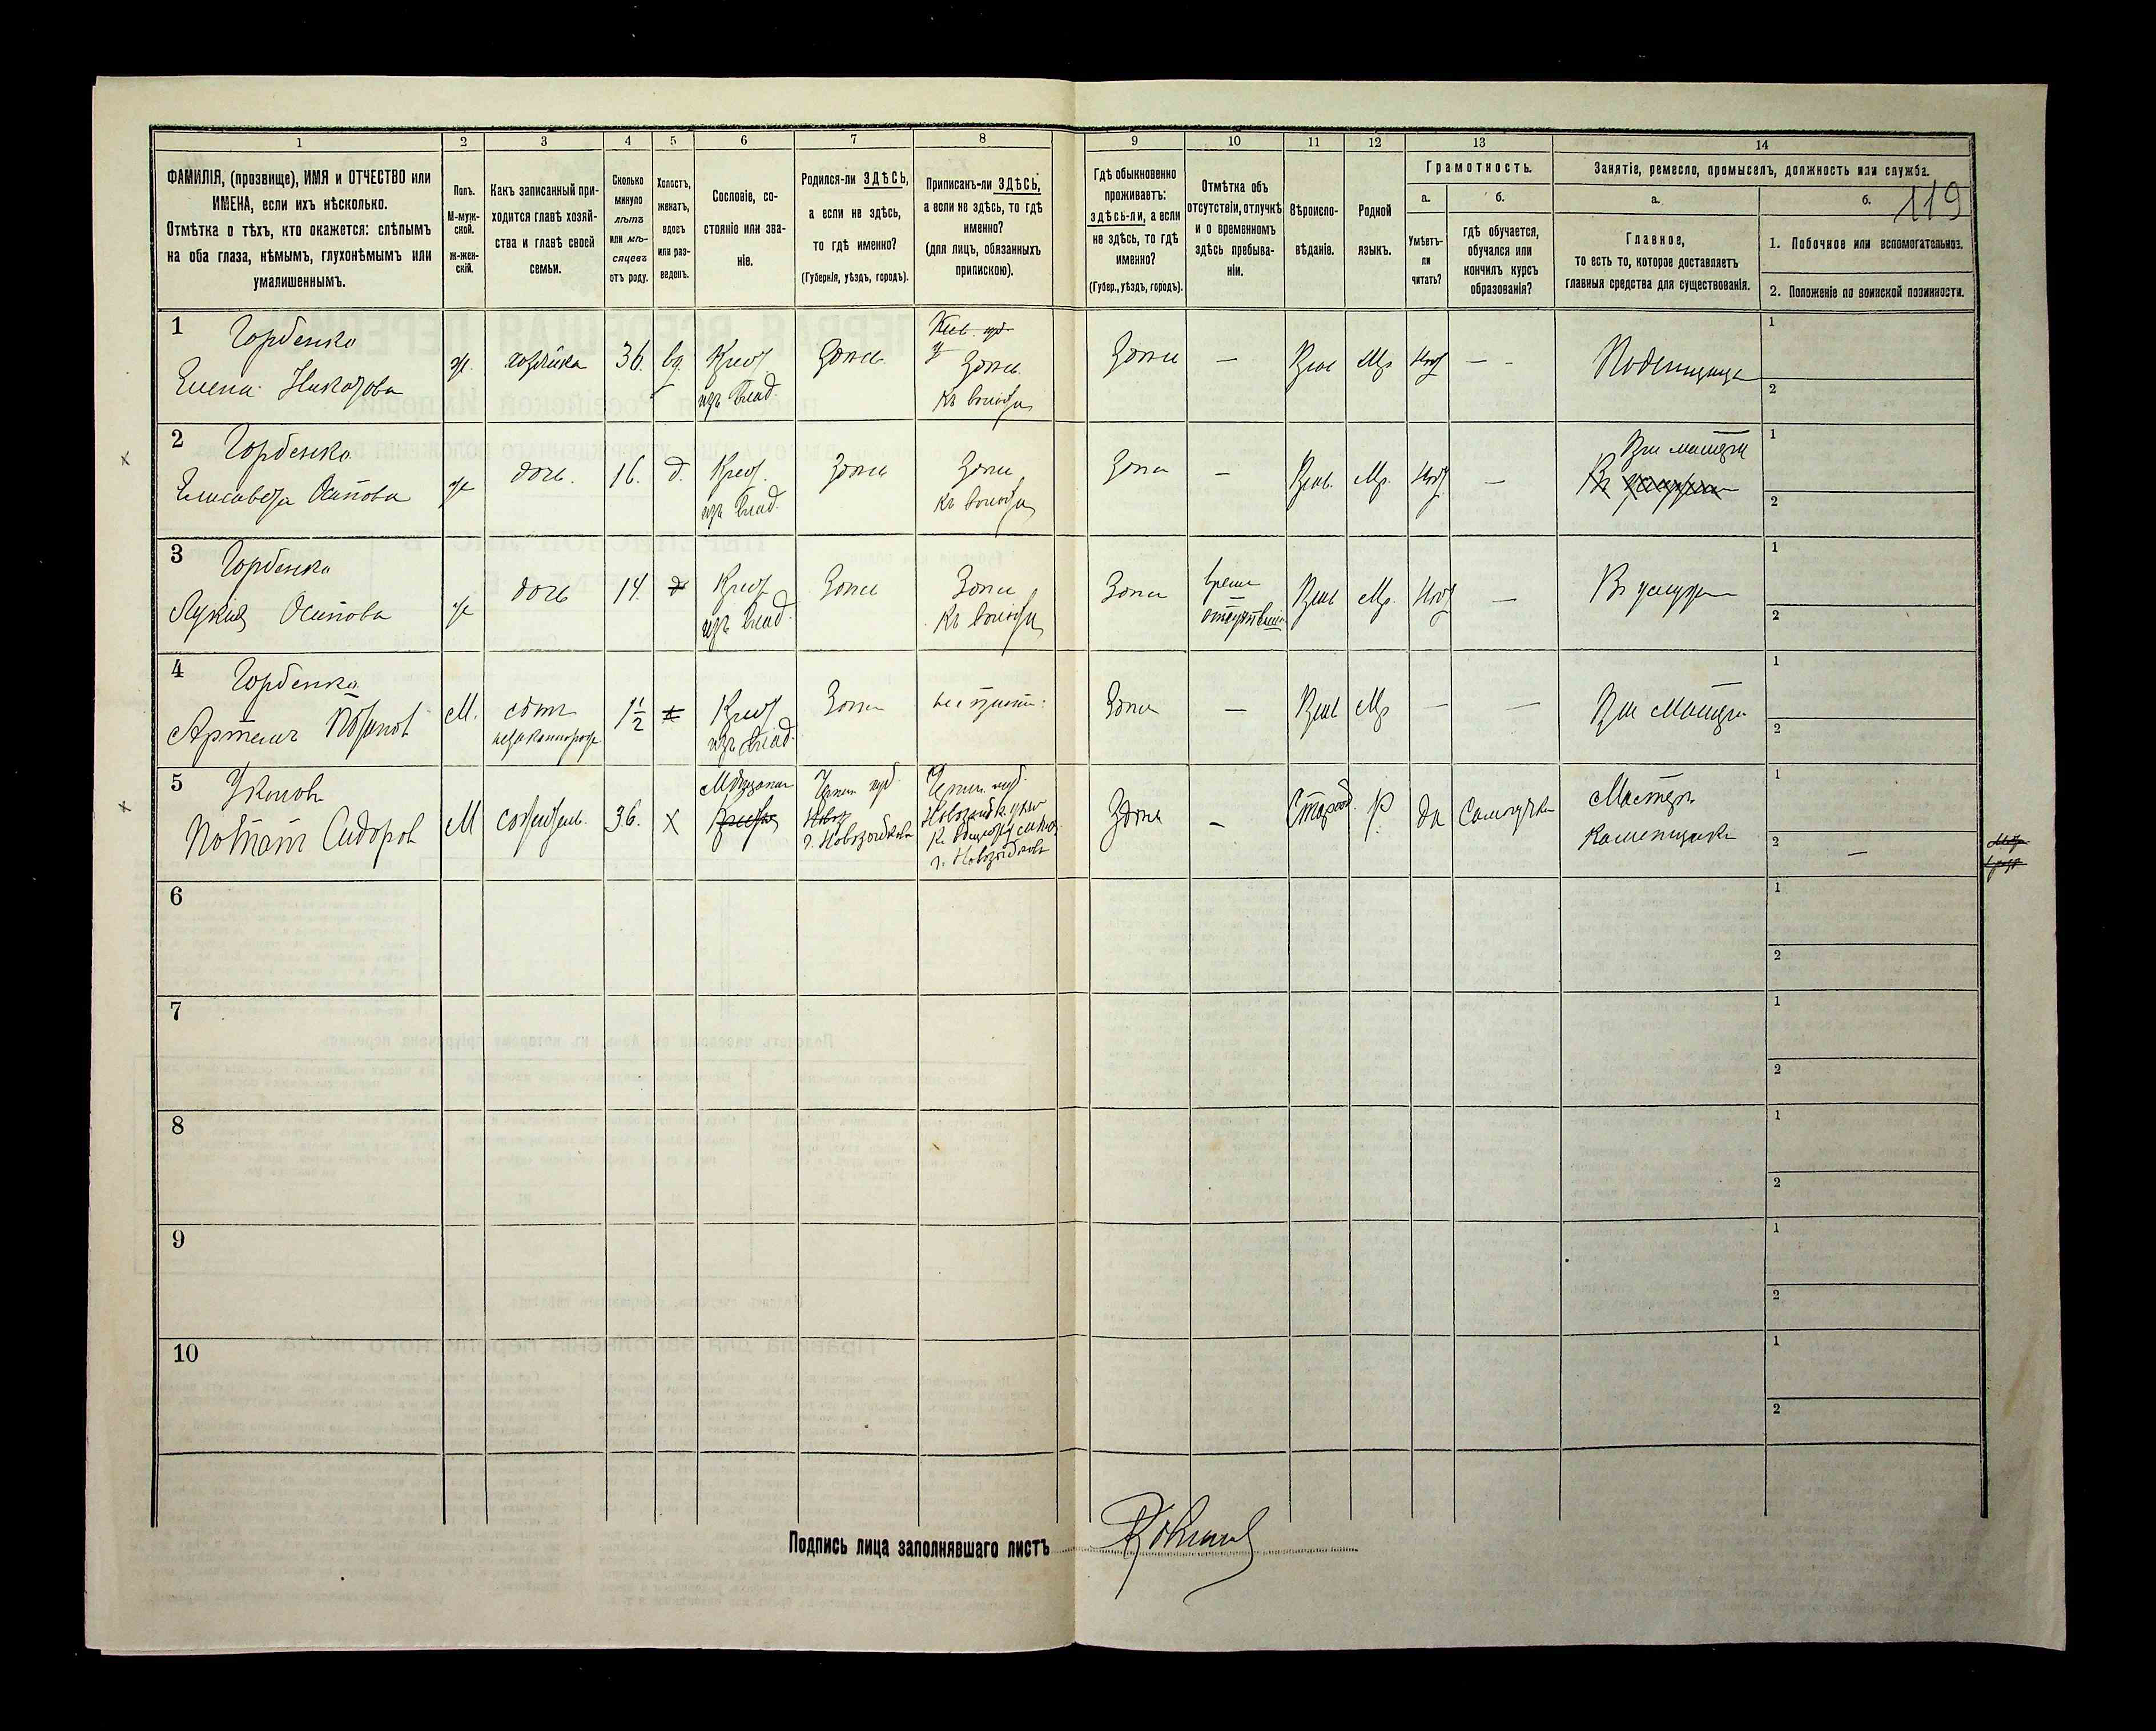 119
1 2 3 4 5 6 7 8 9 10 11 12 13 14
ФАМИЛІЯ, (прозвище), ИМЯ и ОТЧЕСТВО или
ИМЕНА, если ихъ нѣсколько.
Отмѣтка о тѣхъ, кто окажется: слѣпымъ
на оба глаза, нѣмымъ, глухонѣмымъ или
умалишеннымъ.
Полъ.
М-муж-
ской.
Ж-жен-
скій.
Какъ записанный при-
ходится главѣ хозяй-
ства и главѣ своей
семьи.
Сколько
минуло
лѣтъ
или мѣ-
сяцевъ
отъ роду.
Холостъ,
женатъ,
вдовъ
или раз-
веденъ.
Сословіе, со-
стояніе или зва-
ніе.
Родился-ли ЗДѢСЬ,
а если не здѣсь,
то гдѣ именно?
(Губернія, уѣздъ, городъ).
Приписанъ-ли ЗДѢСЬ,
а если не здѣсь, то гдѣ
именно?
(для лицъ, обязанныхъ
припискою).
Гдѣ обыкновенно
проживаетъ:
здѣсь-ли, а если
не здѣсь, то гдѣ
именно?
(Губер., уѣздъ, городъ).
Отмѣтка объ
отсутствіи, отлучкѣ
и о временномъ
здѣсь пребыва-
ніи.
Вѣроиспо-
вѣданіе.
Родной
языкъ.
Грамотность.
а.
Умѣетъ-
ли
читать?
б.
гдѣ обучается,
обучался или
кончилъ курсъ
образованія?
Занятіе, ремесло, промыселъ, должность или служба.
а.
Главное,
то есть то, которое доставляетъ
главныя средства для существованія.
б.
1. Побочное или вспомогательное.
2. Положеніе по воинской повинности.
1
Горбенко
Елена
ж. хозяйка 36. вд.
изъ влад.
Здѣсь
Здѣсь
къ волости
Здѣсь —
Прав Мр Нѣт — -
Поденщица
1
2
2
Горбенко
Елисавета Осипова
ж дочь. 16. д.
изъ влад.
Здѣсь
Здѣсь
къ волости
Здѣсь —
Прав. Мр. Нѣт —
При матери
Въ
1
2
3
Горбенко
Лукія Осипова
ж дочь 14. д
изъ влад.
Здѣсь
Здѣсь
Къ волости
Здѣсь
врем
отсутствіи
Прав Мр. Нѣт —
Въ услуж
1
2
4
Горбенко
Артемъ
М. сынъ
незаконнорож
1 1/2
изъ влад.
Здѣсь
не припис.
Здѣсь —
Прав Мр — —
При Матери
1
2
5
Потапъ Сидоров
М сожитель. 36. х
Мѣщанин
Черн. губ.
г. Новозыбкова
Черн. губ.
г. Новозыбков
Здѣсь —
Старооб. Р. да Самоучка
Мастеръ
каменщикъ
1
2 —
6 1
2
7 1
2
8 1
2
9 1
2
10 1
2
Подпись лица заполнявшаго листъ